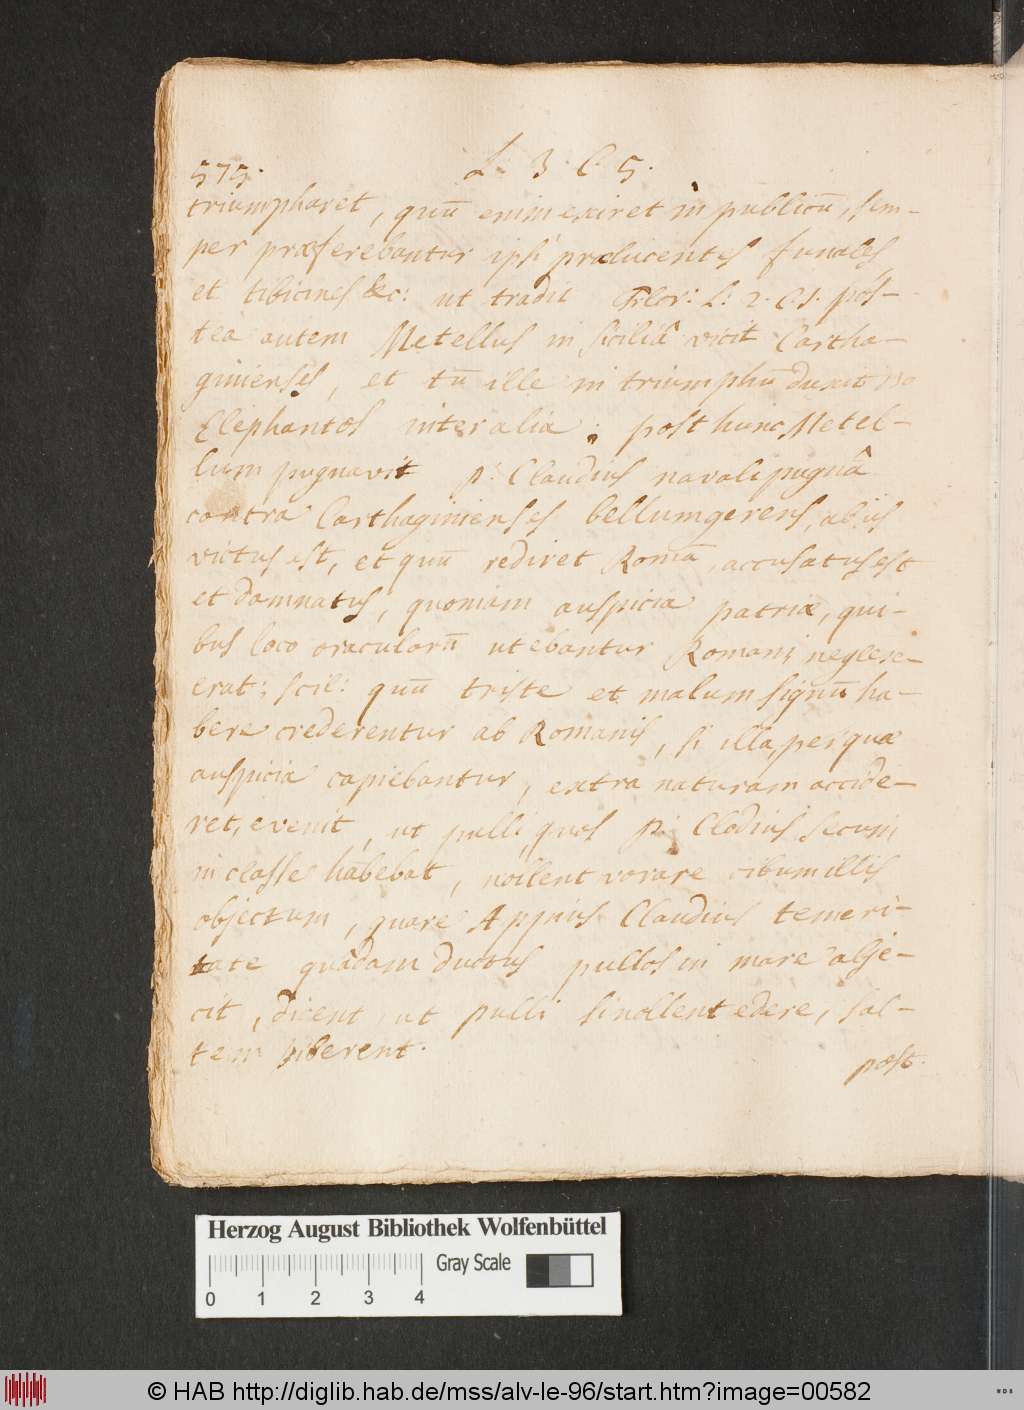 575.
L. 3. C. 5.
triumpharet, quū enim exiret in publicū, sem-
per præferebantur ipsi prælucentes funales
et tibicines &c: ut tradit Flor: L: 2. C. 1. pos-
tea autem Metellus in Siciliâ vicit Cartha-
ginienses, et tū ille in triumphū duxit
Elephantos inter alia. post hunc Metel-
lum pugnavit P: Claudius navali pugnâ
contra Carthaginienses bellumgerens, ab iis
victus est, et quū rediret Romā, accusatus est
et damnatus, quoniam auspicia patriæ, qui-
bus loco oraculorū utebantur Romani neglexe-
erat; scil: quū triste et malum signū ha-
bere crederentur ab Romanis, si illa, per quæ
auspicia capiebantur, extra naturam accide-
ret, evenit, ut pulli, quos P: Clodius secum
in classe habebat, nollent vorare cibum illis
objectum, quare Appius Claudius temeri-
tate quâdam ductus pullos in mare abje-
cit, dicent, ut pulli si nollent edere, sal-
tem biberent.
post.
Herzog August Bibliothek Wolfenbüttel
Gray Scale
0 1 2 3 4
© HAB http://diglib.hab.de/mss/alv-le-96/start.htm?image=00582